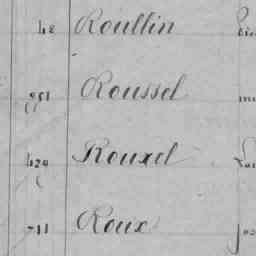 48 Roullin
951 Roussel
429 Rouxel
711 Roux